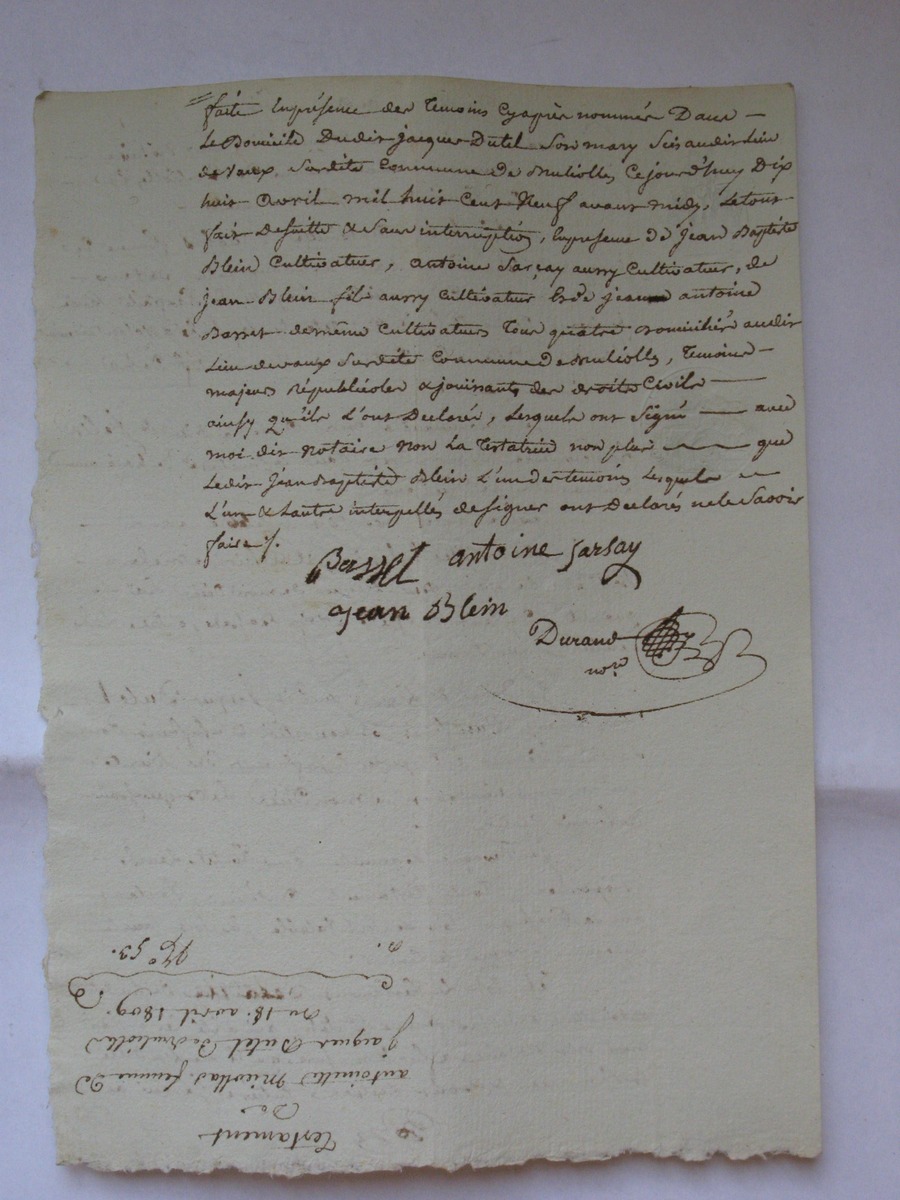 faite En présence des Temoins Cyaprès nommés Dans
Le Domicile Dudit jacques Dutel Son mary Sis audit Lieu
de Vaux Surdite Commune de Muliolles Cejourd'huy Dix
huit avril mil huit Cent Neuf avant midy, Letout
fait Desuitte & Sans interruption, En presence de Jean Baptiste
Blein Cultivateur, antoine Sarçay aussy Cultivateur, de
jean Blein fils aussy Cultivateur Et de jean antoine
Basset demême Cultivateur Tous quatre domiciliés audit
Lieu devaux Surdite Commune De Muliolles, Temoins
majeurs Républicoles & jouissants des droits Civils
ainsy qu'ils L'ont Declarés, Lesquels ont Signé avec
moi dit Notaire Non La Testatrice non plus que
Ledit Jean Baptiste Blein L'un des temoins Lesquels
L'un & Lautre interpellés designer ont Declarés nele Savoir
faire ./.
Basset antoine Sarsay
jean Blein
Durand
nore
Testament
De
antoinette Micollas femme D
jacques Dutel De Muliolles
Du 18. avril 1809.
No 53.